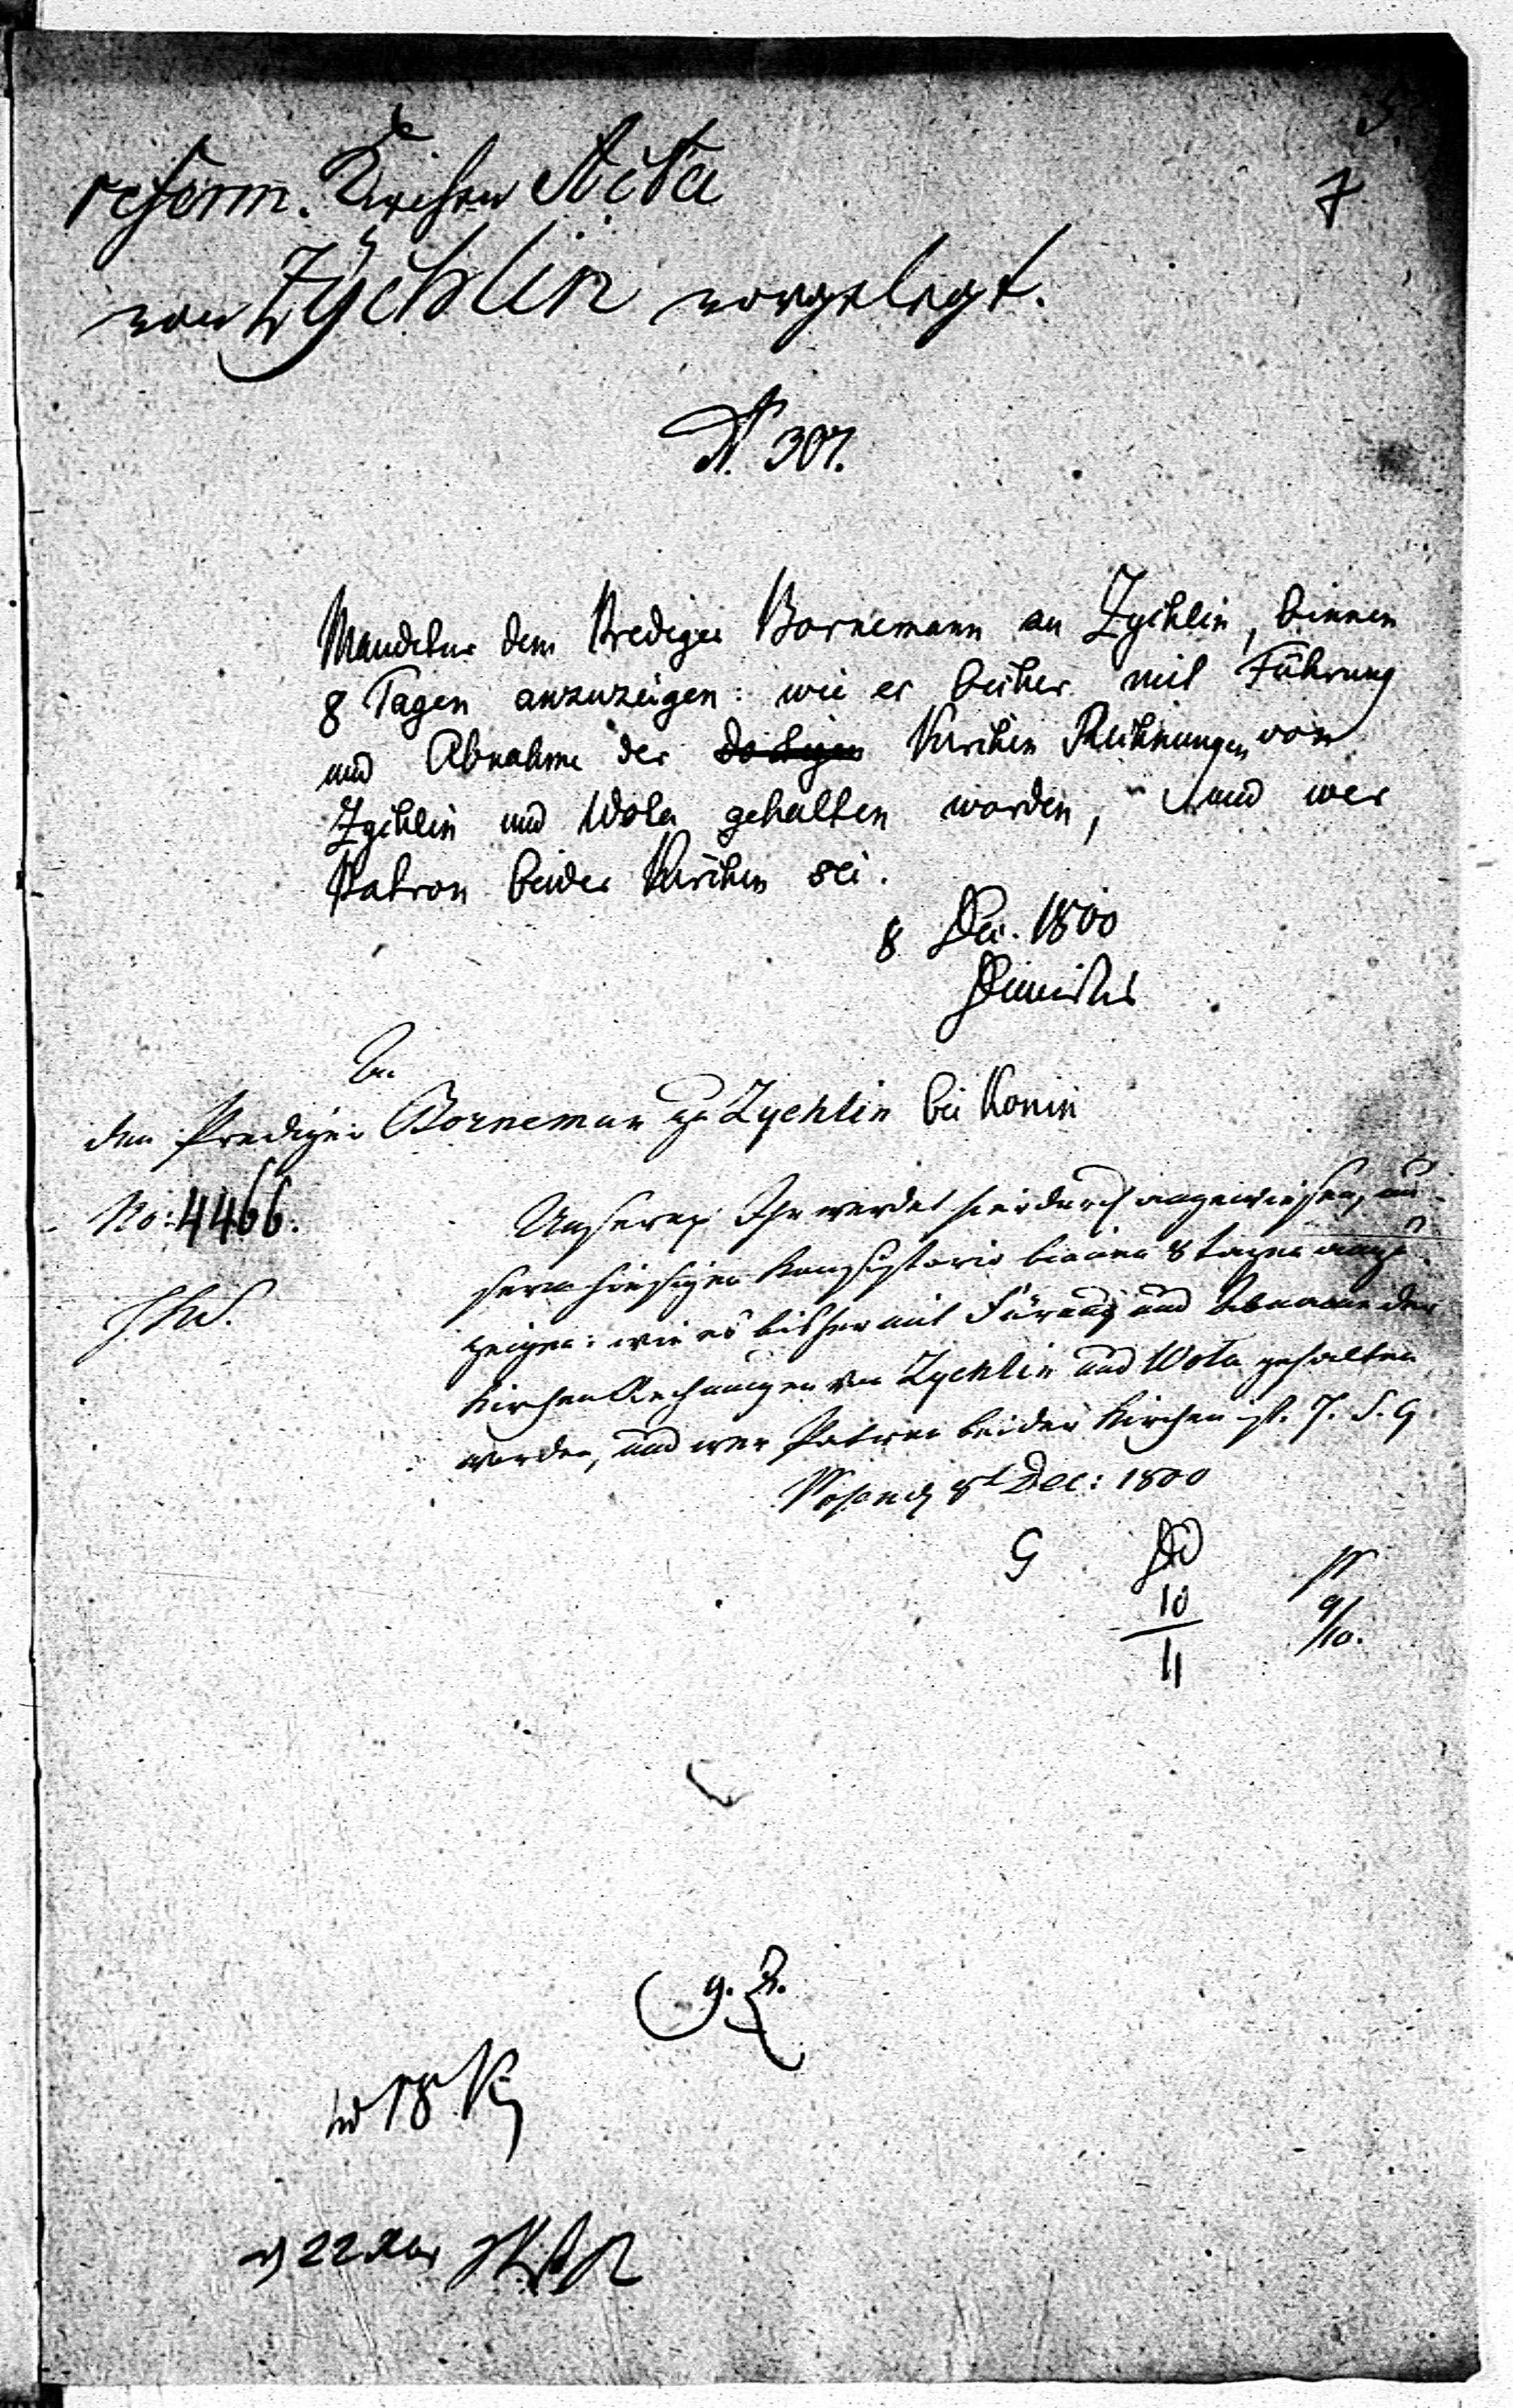 5
7
reform. Kirchen Acta
von Zychlin vorgelegt.
N. 307.
Mandetur dem Prediger Bornemann zu Zychlin, binnen
8 Tagen anzuzeigen: wie es bisher mit Führung
und Abnahme der dortigen Kirchen Rechnungen von
Zychlin und Wola gehalten worden, und wer
Patron beider Kirchen sei.
8 Dec. 1800
An
den Prediger Borneman zu Zychlin bei Konin
No: 4466.
Unsern p. Ihr werdet hierdurch angewiesen, un-
serm hiesigen Konsistorio binnen 8 tagen anzu-
zeigen: wie es bisher mit Fürung und Abname der
Kirchen Rechnungen von Zychlin und Wola gehalten
worden, und wer Patron beider Kirchen ist. J. S. G
Posen d 8t Dec: 1800
G
10
11
9/10.
22